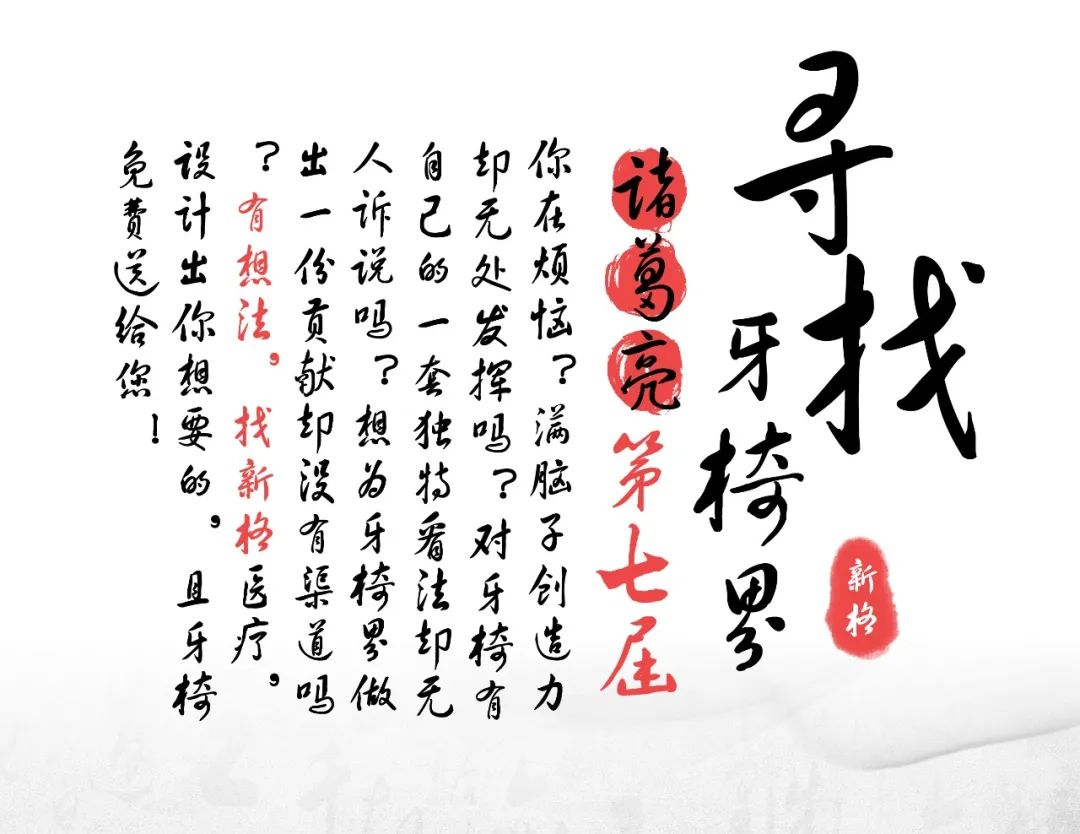 寻找
牙椅界
新格
诸葛亮第七届
你在烦恼?满脑子创造力
却无处发挥吗?对牙椅有
自己的一套独特看法却无
人诉说吗?想为牙椅界做
出一份贡献却没有渠道吗
?有想法,找新格医疗,
设计出你想要的,且牙椅
免费送给您!